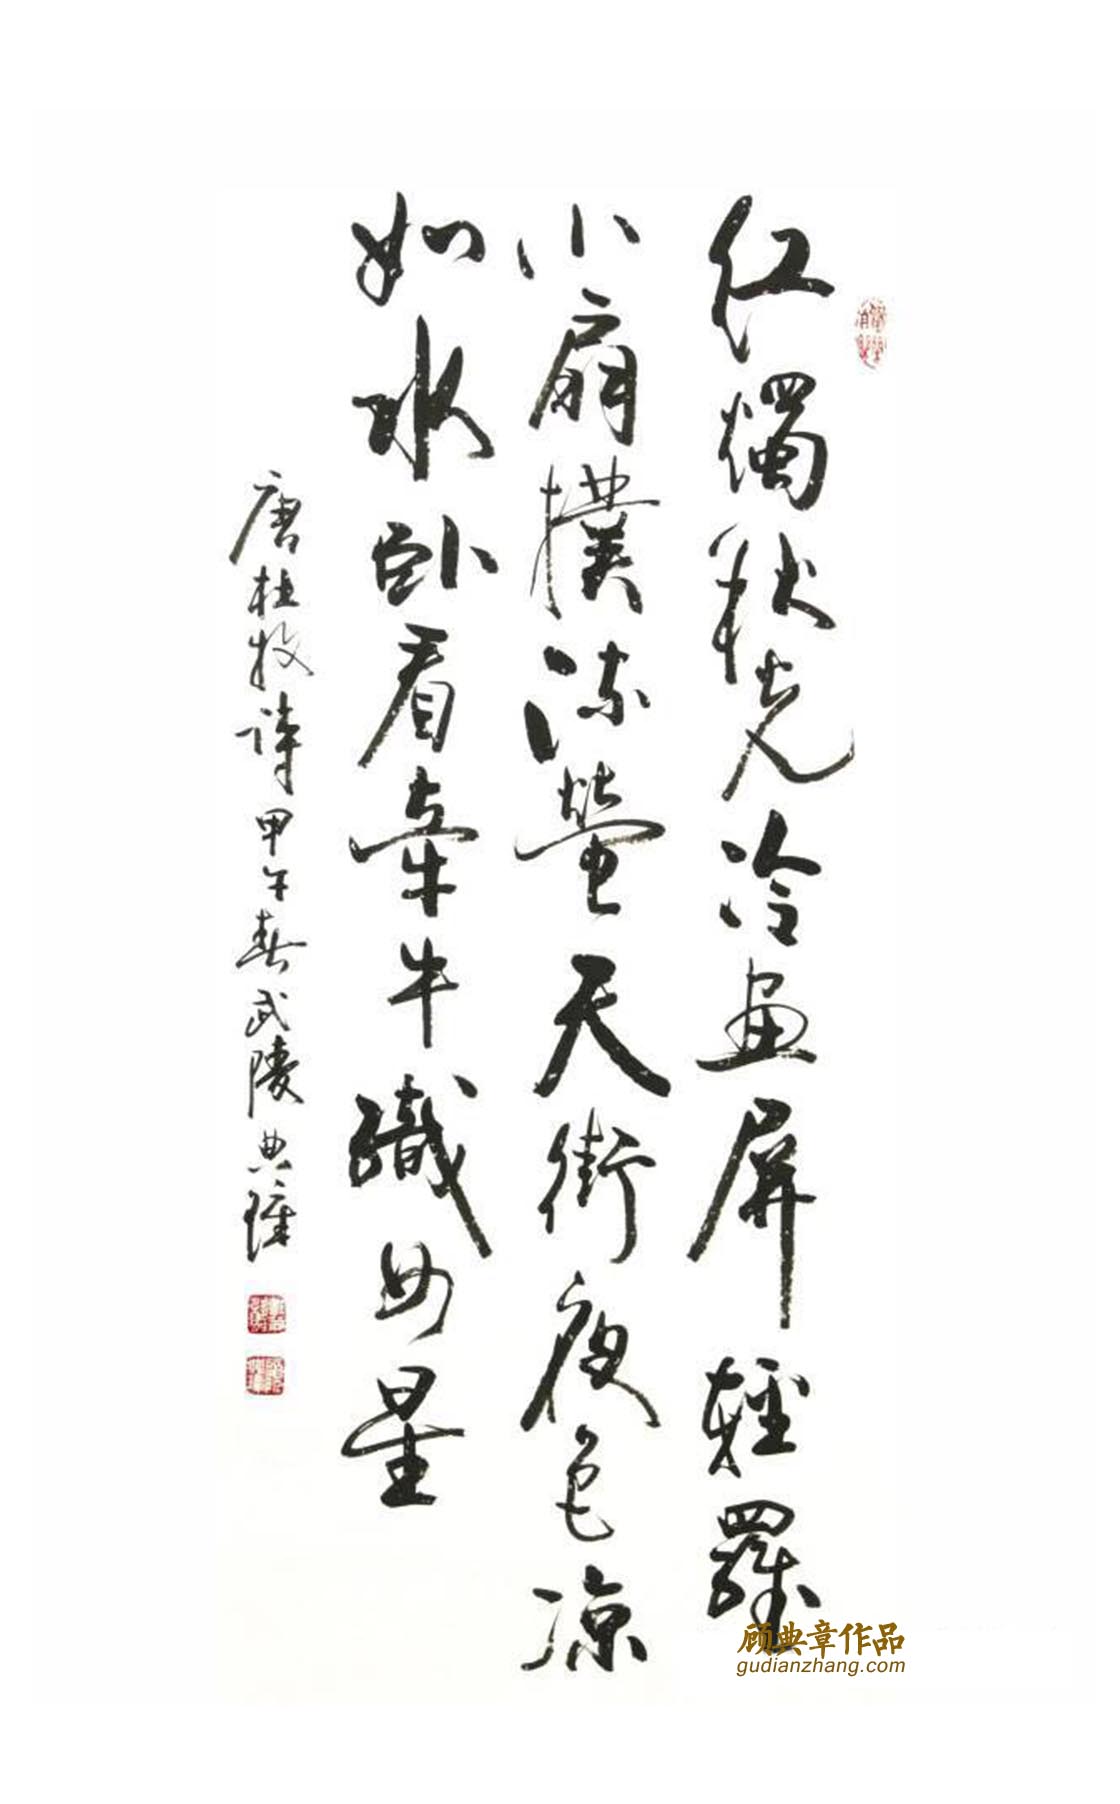 红燭秋光冷画屏輕羅
小扇撲流螢天街夜色凉
如水卧看牽牛織女星
唐杜牧詩甲午春武陵典璋
顾典章作品
gudianzhang.com